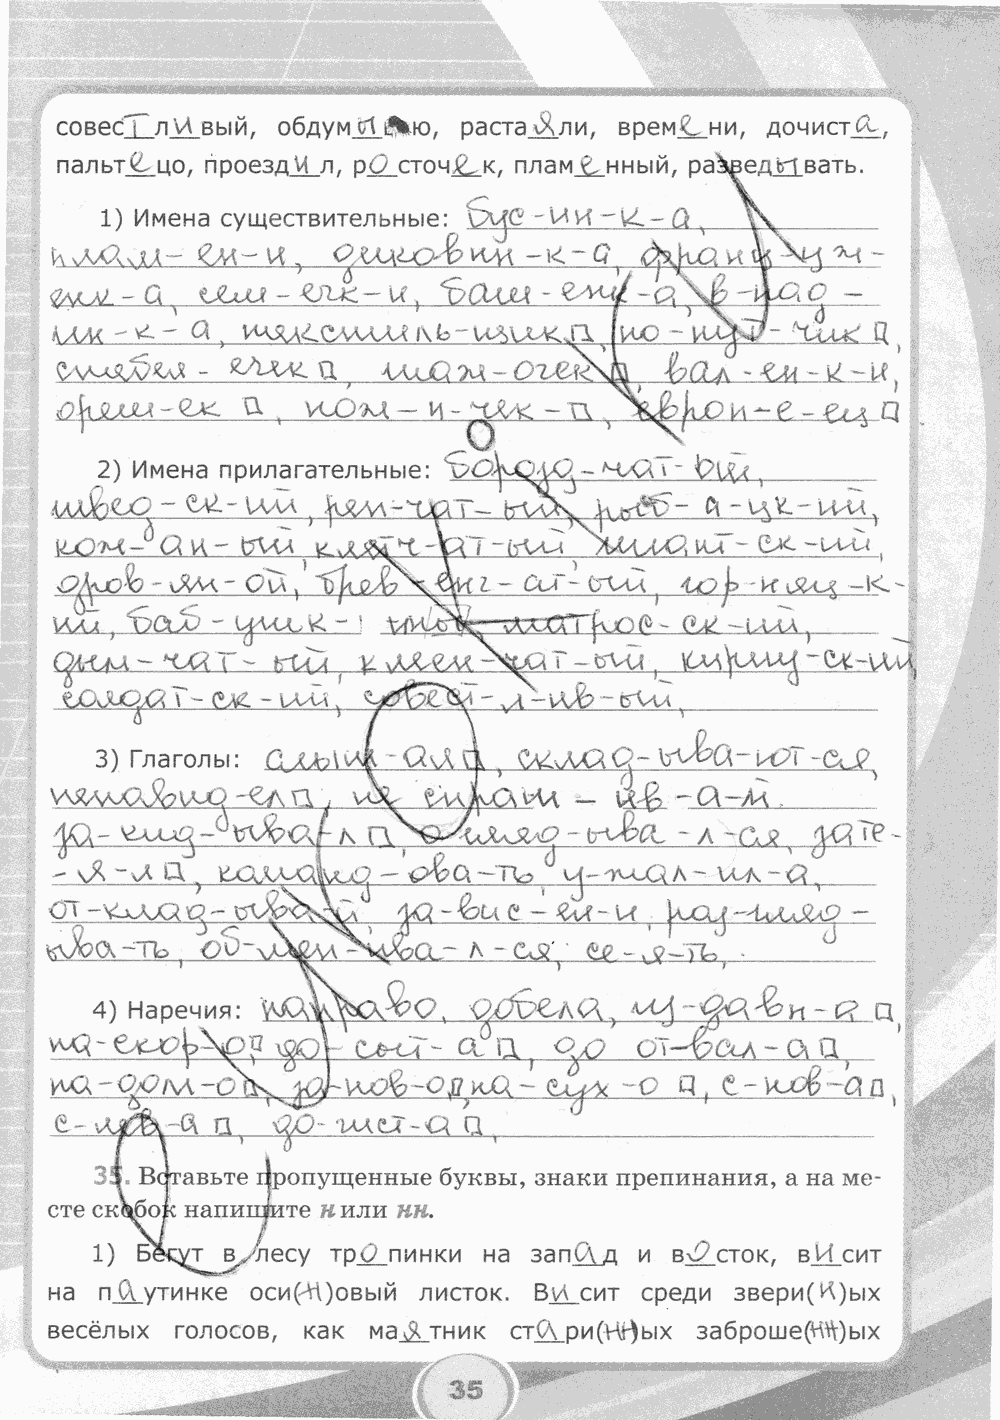 совестливый, обдумываю, растаяли, времени, дочиста,
пальтецо, проездил, росточек, пламенный, разведывать.
1) Имена существительные: бус-ин-к-а,
плам-ен-и, диковин-к-а, франц-уж-
енк-а, сем-ечк-и, баш-енк-а, в-пад-
ин-к-а, текстиль-щик□, по-пут-чик□,
стебел-ёчек□, шаж-очек□, вал-ен-к-и,
ореш-ек□, нож-и-чек-□, европ-е-ец□
2) Имена прилагательные: борозд-чат-ый,
швед-ск-ий, реп-чат-ый, рыб-а-цк-ий,
кож-ан-ый, клетч-ат-ый, гигант-ск-ий,
дров-ян-ой, брев-енч-ат-ый, гор-няц-к-
ий, баб-ушк- матрос-ск-ий,
дым-чат-ый, клеен-чат-ый, киргиз-ск-ий
солдат-ск-ий, совест-л-ив-ый,
3) Глаголы: слыш-ал□, склад-ыва-ют-ся,
ненавид-ел□, не спраш-ив-а-й.
за-кид-ыва-л□, о-гляд-ыва-л-ся, зате-
-я-л□, команд-ова-ть, у-жал-ил-а,
от-клад-ыва-й, за-вис-ел-и, раз-гляд-
ыва-ть, об-мен-ива-л-ся, се-я-ть,
4) Наречия: направо, добела, из-давн-а□,
на-скор-о□, до-сыт-а□, до отвал-а□,
на-дом-о□, за-нов-о□, на-сух-о□, с-нов-а□,
с-лев-а□, до-чист-а□,
35. Вставьте пропущенные буквы, знаки препинания, а на ме-
сте скобок напишите н или нн.
1) Бегут в лесу тропинки на запад и восток, висит
на паутинке оси(н)овый листок. Висит среди звери(н)ых
весёлых голосов, как маятник стари(нн)ых заброше(нн)ых
35